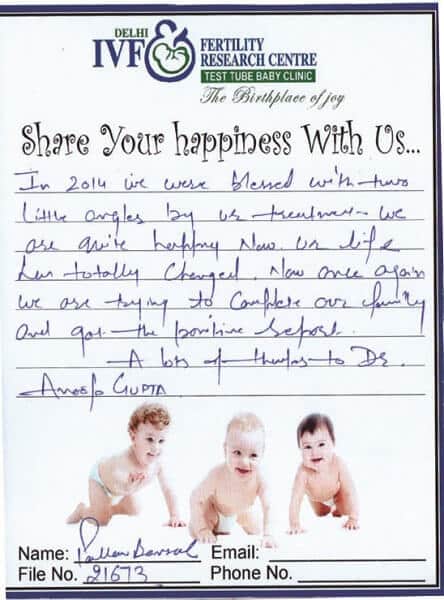 DELHI
IVF & FERTILITY
RESEARCH CENTRE
TEST TUBE BABY CLINIC
The Birthplace of joy
Share Your happiness With Us...
In 2014 we were blessed with two
little angles by ur treatment we
are quite happy Now. ur life
has totally changed. Now once again
we are trying to complete our family
and got the positive report.
A lots of thanks to Dr.
Anoop GUPTA
Name: Pallavi Bansal Email:
File No. 21673 Phone No.